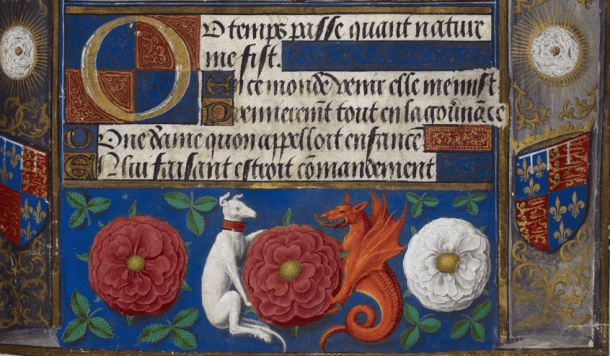 Ou temps passe quant nature
me fist.
En ce monde venir elle me mist
Premieremēt tout en la gouv̄nāce
Dune dame quon appelloit enfance
En lui faisant estroit cōmandement